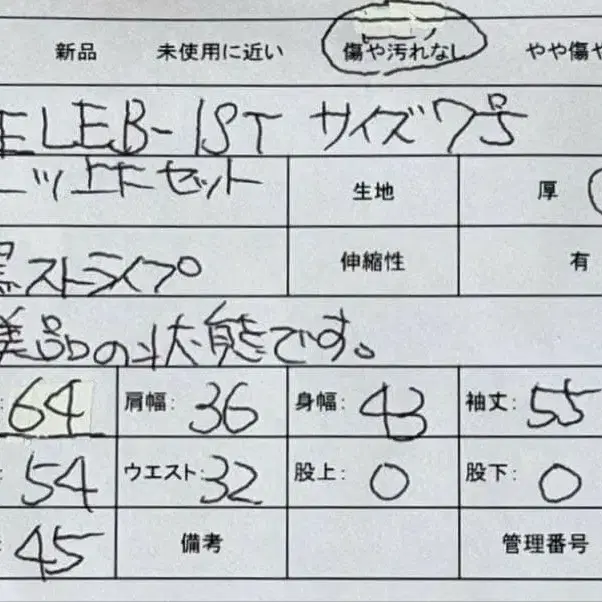 新品 未使用に近い 傷や汚れなし やや傷や
ELEB-IST サイズ7号
ニッ上下セット 生地 厚
黒ストライプ 伸縮性 有
美品の状態です。
: 64 肩幅: 36 身幅: 43 袖丈: 55
: 54 ウエスト: 32 股上: 0 股下: 0
: 45 備考 管理番号